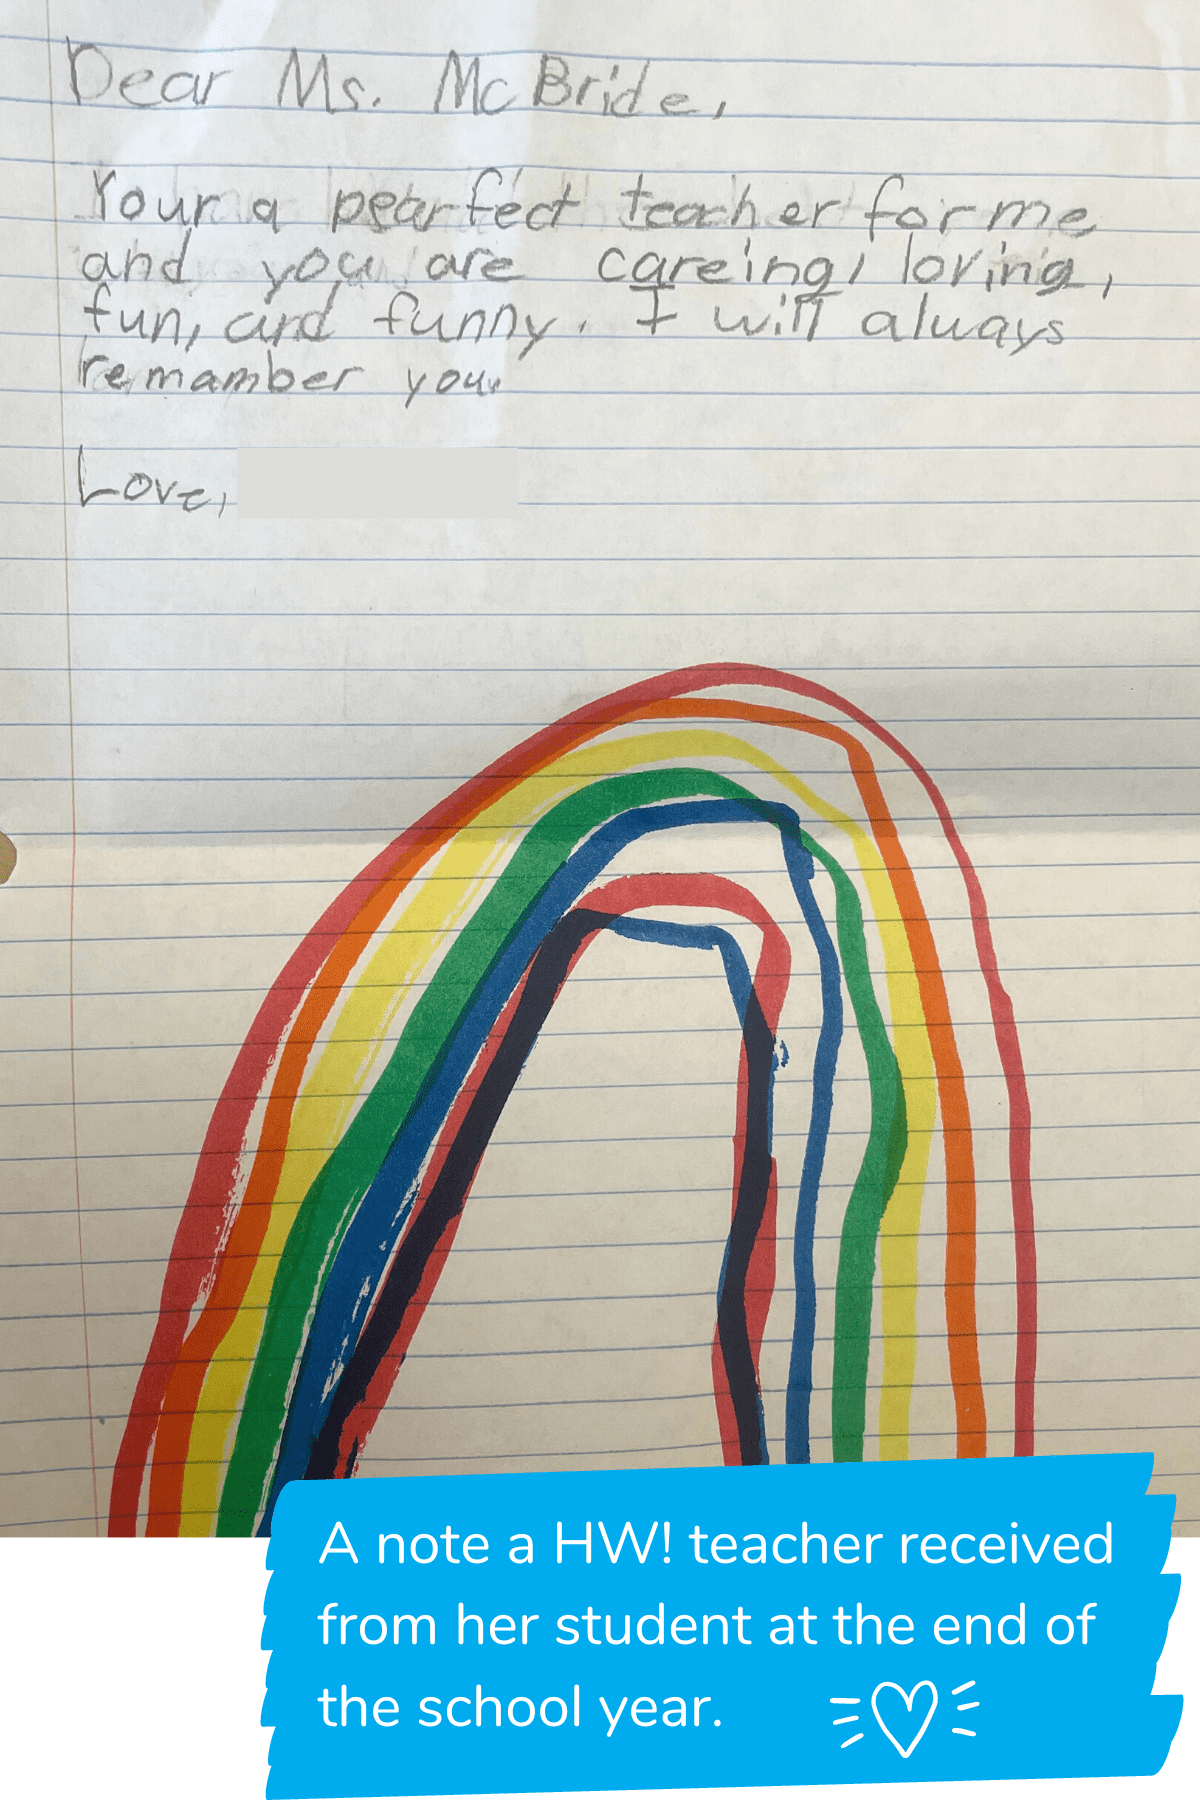 Dear Ms. McBride,
Your a pearfect teacher for me
and you are careing, loving,
fun, and funny. I will always
remamber you.
Love,
A note a HW! teacher received
from her student at the end of
the school year.